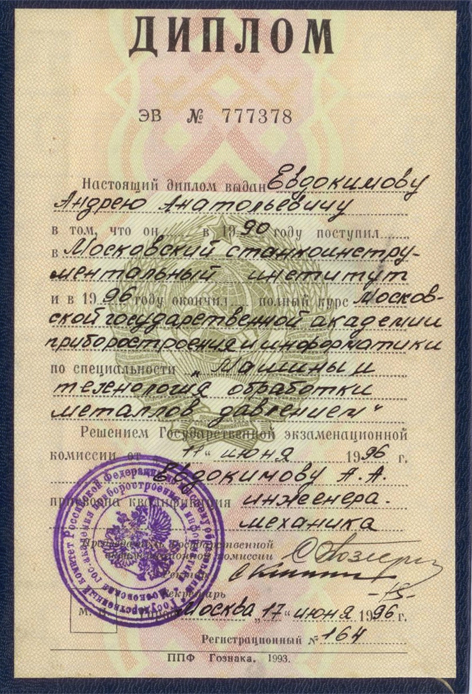 ДИПЛОМ
ЭВ № 777378
Настоящий диплом выдан Евдокимову
Андрею Анатольевичу
в том, что он в 1990 году поступил
в Московский станкоинстру-
ментальный институт
и в 1996 году окончил полный курс Москов-
ской государственной академии
приборостроения и информатики
по специальности „Машины и
технология обработки
металлов давлением"
Решением Государственной экзаменационной
комиссии от „11" июня 1996 г.
Евдокимову А. А.
присвоена квалификация инженера-
механика
Председатель Государственной
экзаменационной комиссии
Ректор
Секретарь
М. П. Город Москва „17" июня 1996 г.
Регистрационный № 164
ППФ Гознака. 1993.